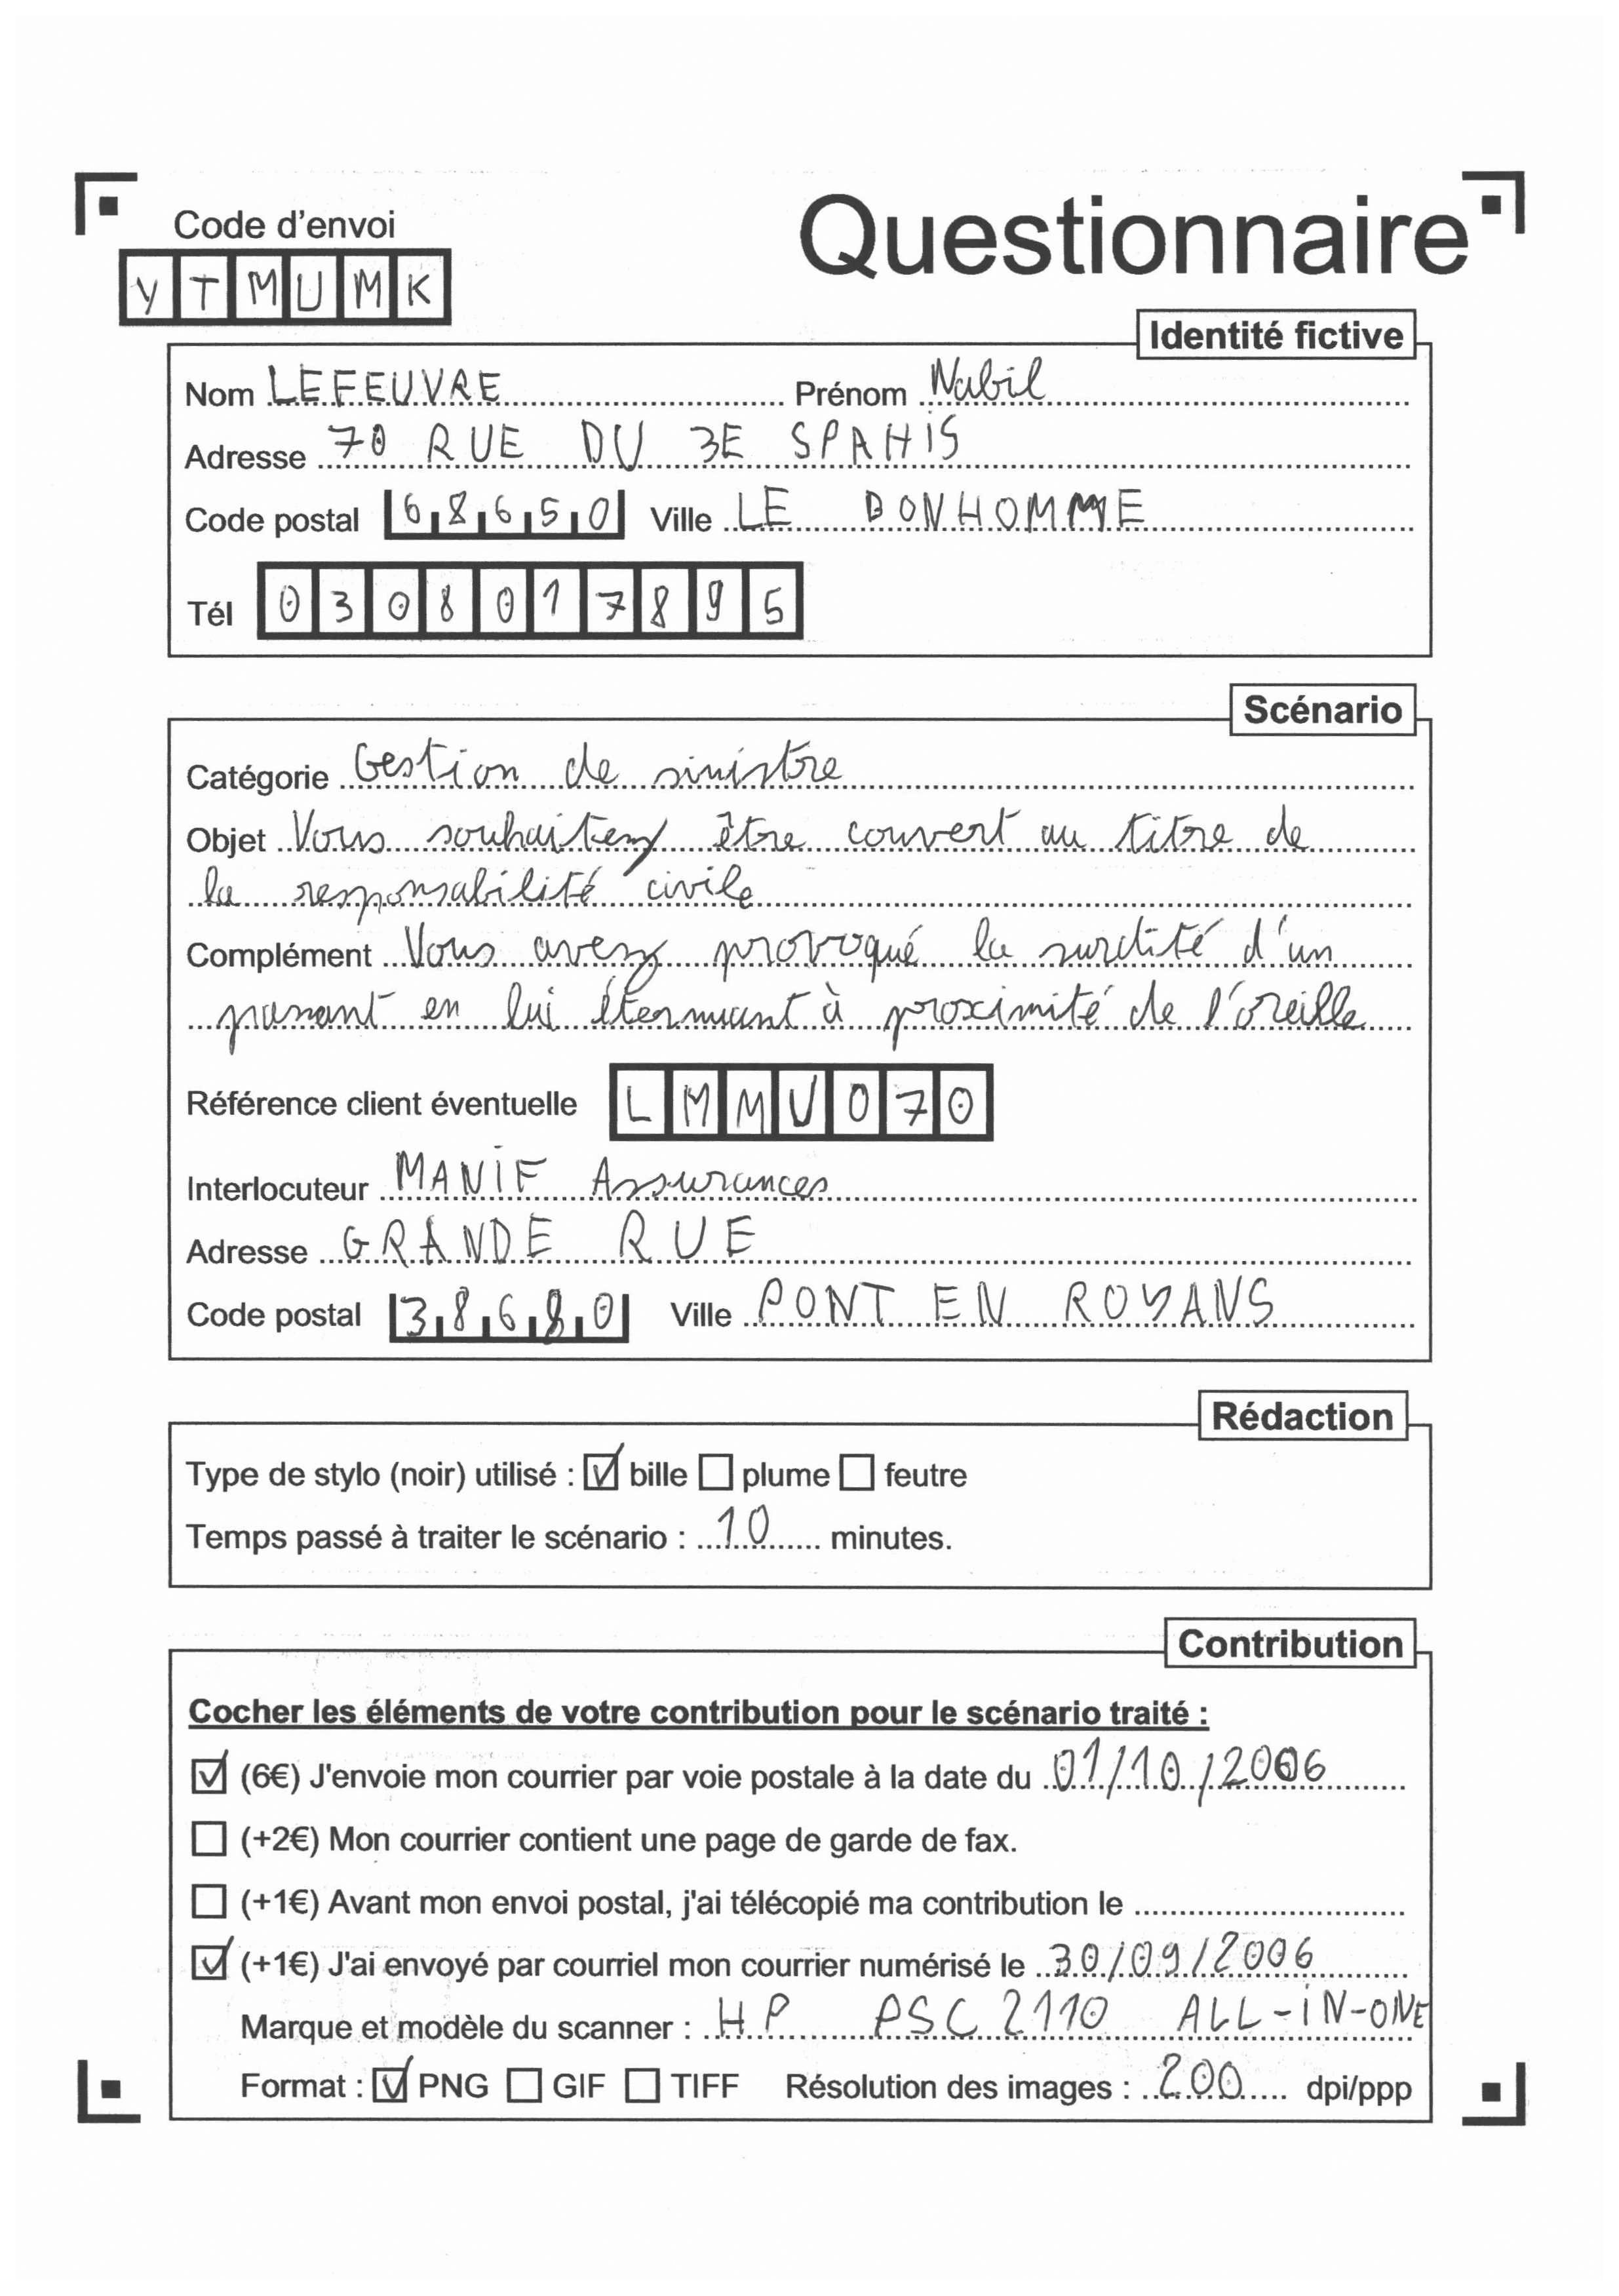 Code d'envoi
Questionnaire
YTMUMK
Identité fictive
Nom LEFEUVRE Prénom Nabil
Adresse 70 RUE DU 3E SPAHIS
Code postal 68650 Ville LE BONHOMME
Tél 0308017895
Scénario
Catégorie Gestion de sinistre
Objet Vous souhaitez être couvert au titre de
la responsabilité civile
Complément Vous avez provoqué la surdité d'un
passant en lui éternuant à proximité de l'oreille
Référence client éventuelle LMMVO70
Interlocuteur MANIF Assurances
Adresse GRANDE RUE
Code postal 38680 Ville PONT EN ROYANS
Rédaction
Type de stylo (noir) utilisé : ☑ bille ☐ plume ☐ feutre
Temps passé à traiter le scénario : 10 minutes.
Contribution
Cocher les éléments de votre contribution pour le scénario traité :
☑ (6€) J'envoie mon courrier par voie postale à la date du 01/10/2006
☐ (+2€) Mon courrier contient une page de garde de fax.
☐ (+1€) Avant mon envoi postal, j'ai télécopié ma contribution le
☑ (+1€) J'ai envoyé par courriel mon courrier numérisé le 30/09/2006
Marque et modèle du scanner : HP PSC 2110 ALL-IN-ONE
Format : ☑ PNG ☐ GIF ☐ TIFF Résolution des images : 200 dpi/ppp